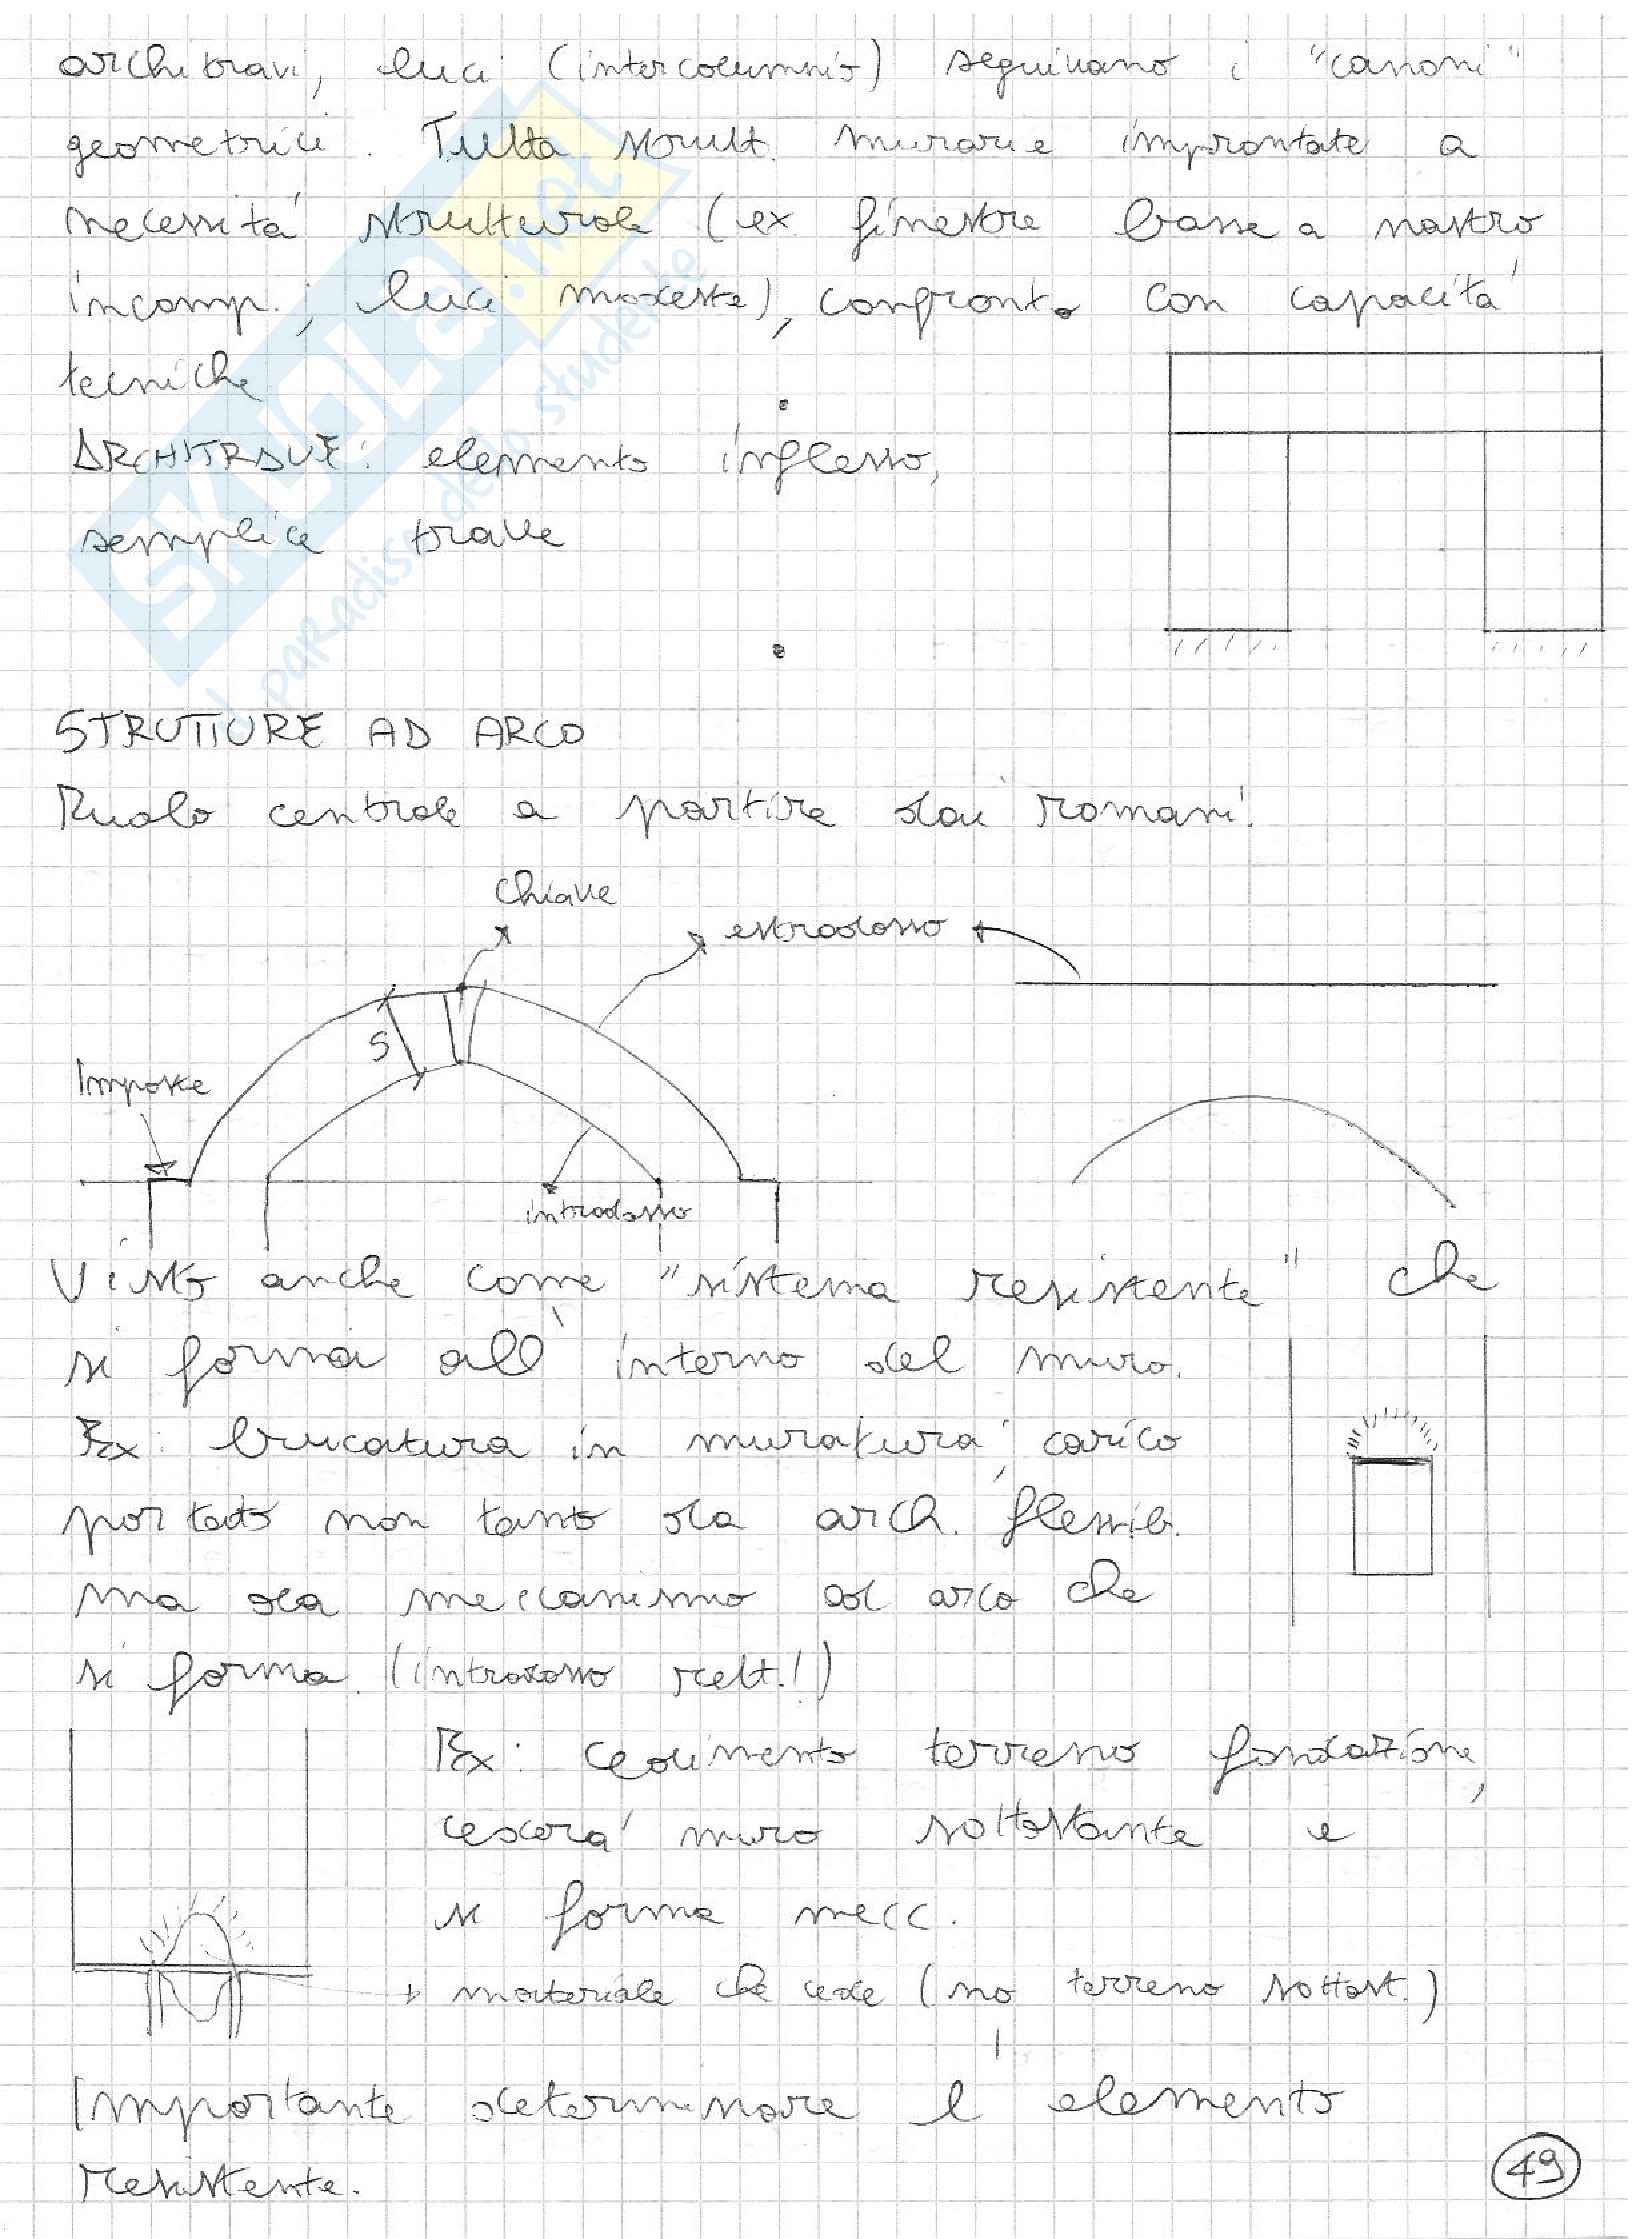 architravi, luci (intercolumnio) seguivano i "canoni"
geometrici. Tutta strutt. murarie improntate a
necessità strutturale (ex finestre basse a nastro
incomp.; luci modeste), confronto con capacità
tecniche
ARCHITRAVE: elemento inflesso,
semplice trave
STRUTTURE AD ARCO
Ruolo centrale a partire dai romani.
chiave
estradosso
S
Imposte
intradosso
Visto anche come "sistema resistente" che
si forma all'interno del muro.
Ex: bucatura in muratura, carico
portato non tanto da arch. flessib.
ma da meccanismo ad arco che
si forma. (intradosso rett.!)
Ex: cedimento terreno fondazione,
cederà muro sottostante e
si forma mecc.
materiale che cede (no terreno sottost.)
Importante determinare l'elemento
resistente.
49
SKUOLA.net
il paradiso dello studente